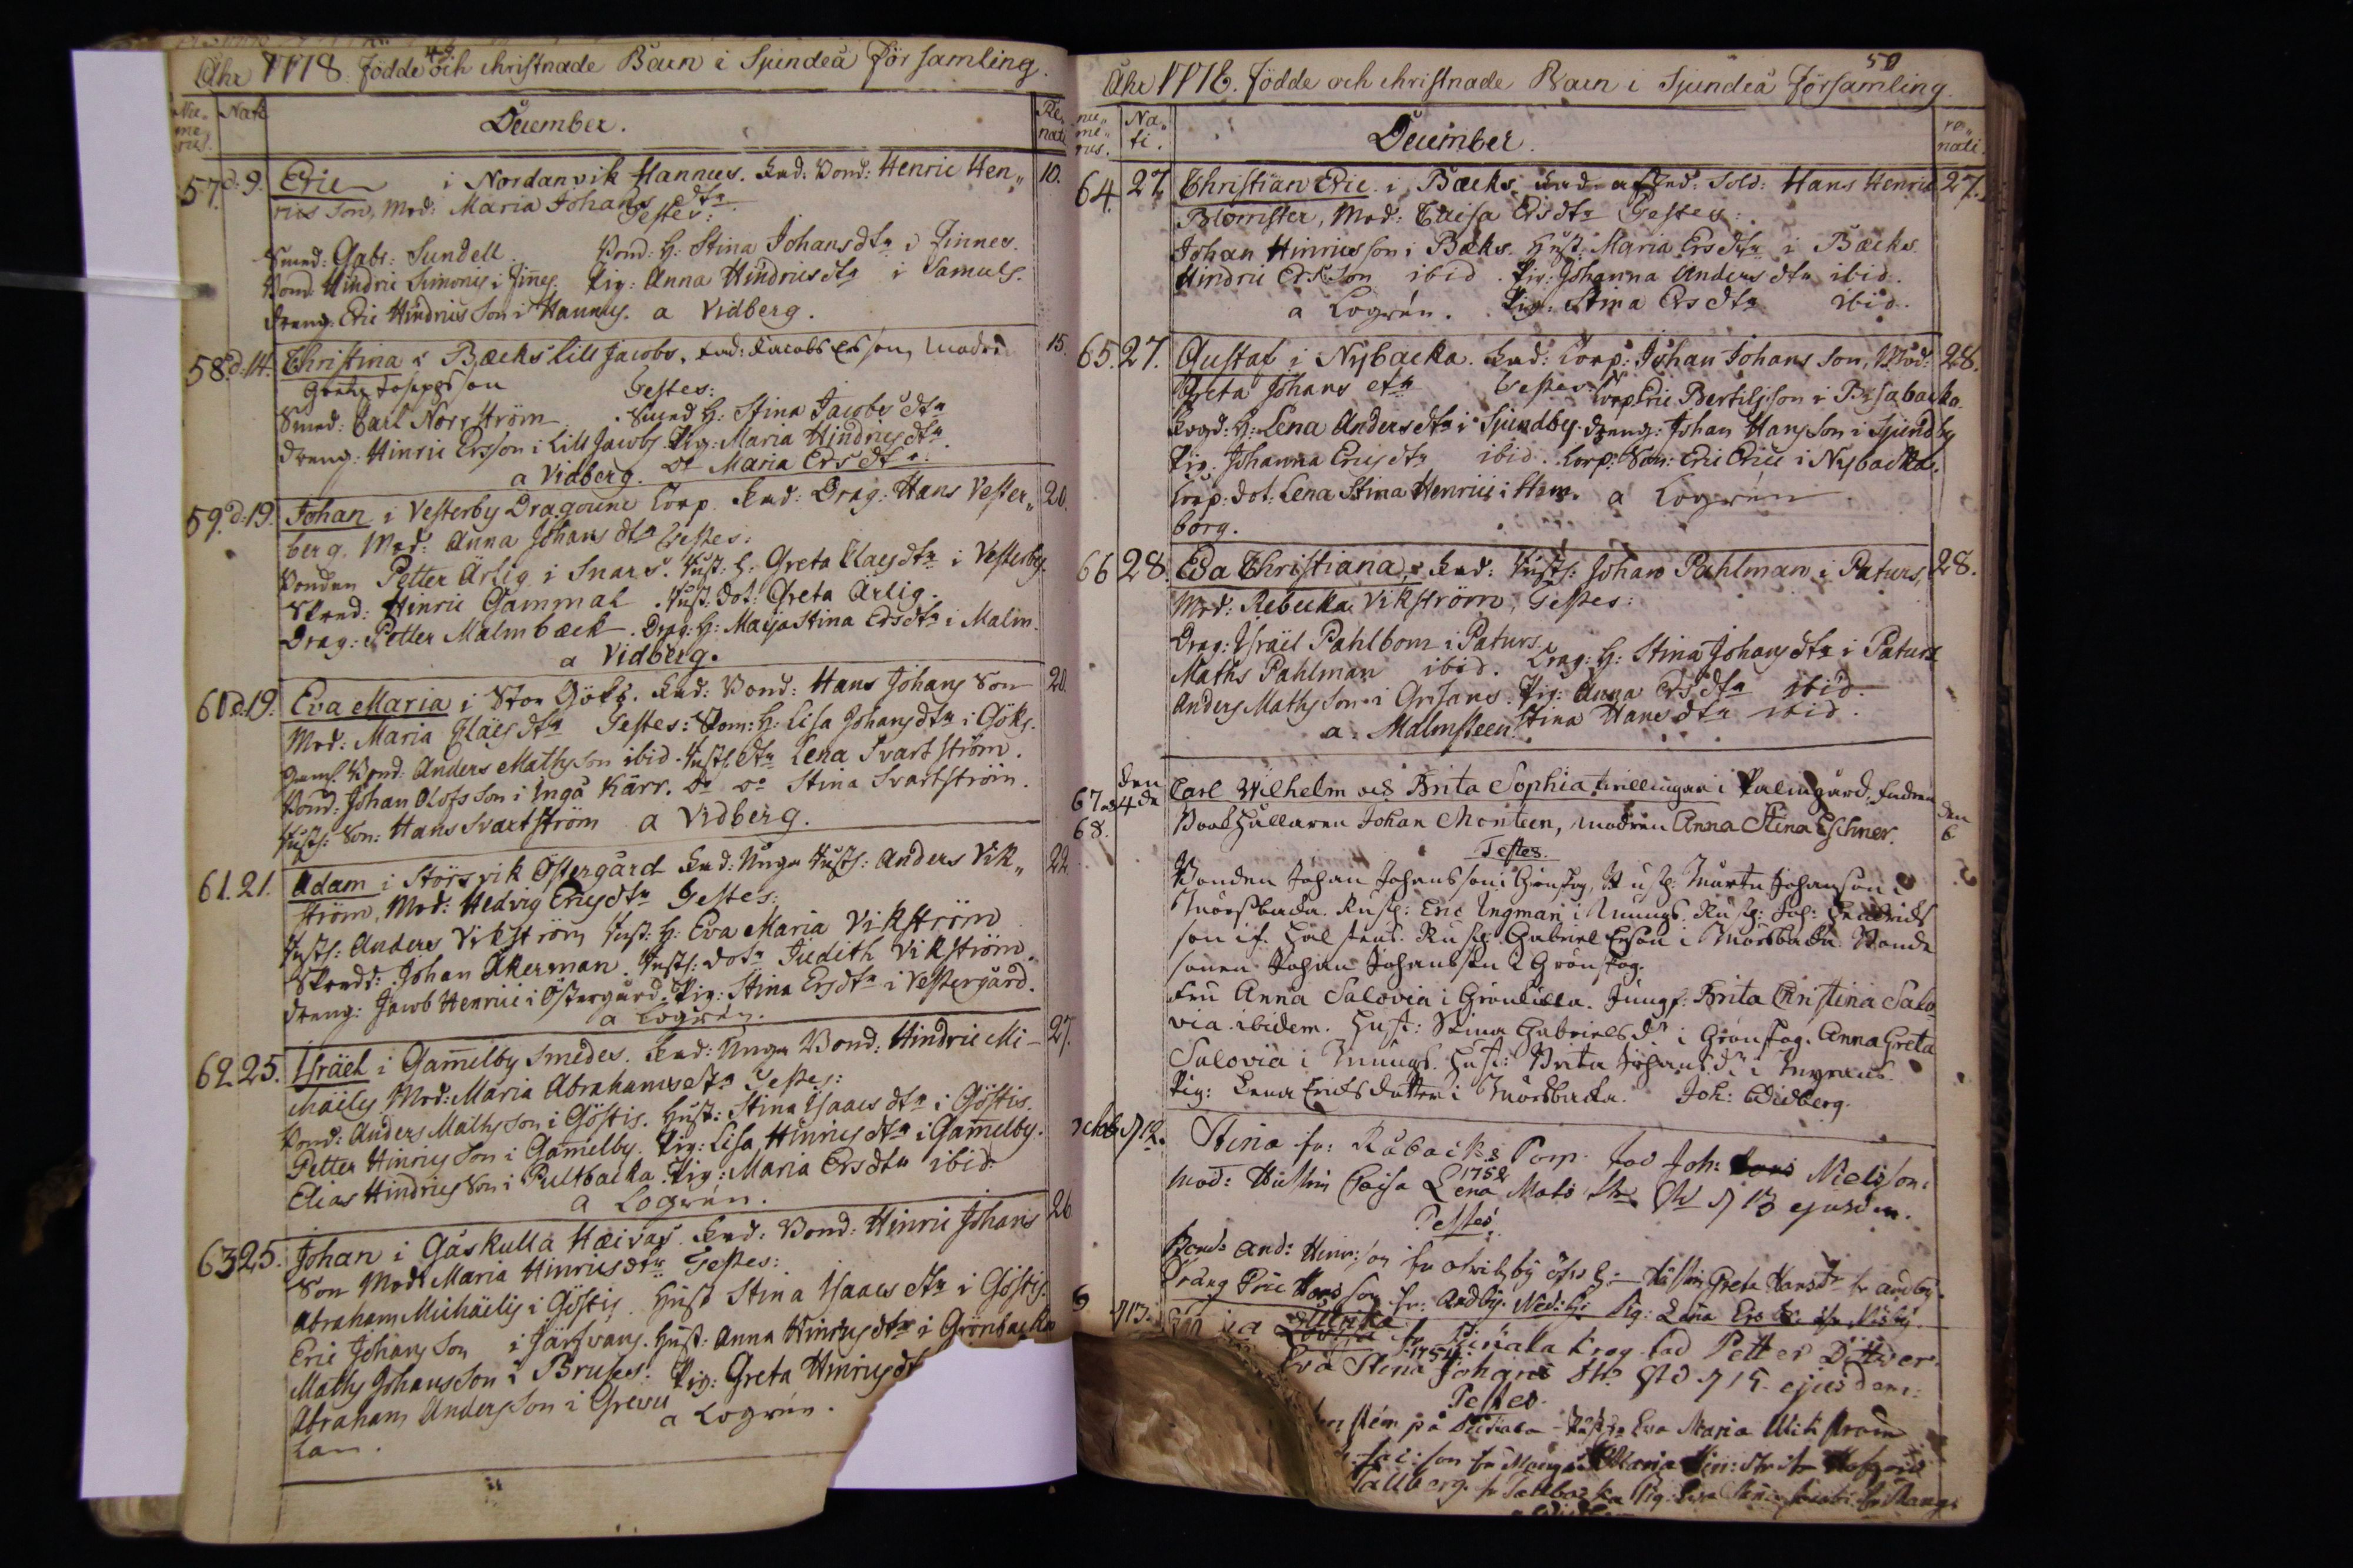 48
Åhr 1778. Födde och christnade Barn i Sjundeå Församling.
Nu„ me„ rus. Nati December. Re„ nati
57. d. 9. Eric i Nordanvik Hannus. Fad: Bond: Henric Hen„ 10.
rics son, Mod: Maria Johans dtr
Testes:
Smed: Gabr: Sundell. Bond: H: Stina Johansdtr i Finnes.
Bond: Hindric Simonis i Fines. Pig: Anna Hindricsdtr i Samuls.
Dreng: Eric Hindrics Son i Hannus. a Vidberg.
58. d. 14. Christina i Bæcks Lill Jacobs, Fad: Jacob Ersson, Modr: 15.
Greta Josepsson Testes:
Smed: Carl Norrström. Smed H: Stina Jacobs dtr
Dreng: Hinric Ersson i Lill Jacobs. Pig: Maria Hindrics dtr
a Vidberg. Do Maria Ersdtr.
59. d. 19. Johan i Vesterby Dragoune Torp. Fad: Drag: Hans Vester„ 20.
berg, Mod: Anna Johans dtr Testes:
Bonden Petter Ärlig i Snars. Rust: H: Greta Claesdtr i Vesterby.
Skred: Hinric Gammal. Rust: dot: Greta Ärlig.
Drag: Petter Malmbæck. Drag: H: Maja Stina Ersdtr i Malm.
a Vidberg.
60. d. 19. Eva Maria i Stor Göks. Fad: Bond: Hans Johans Son 20.
Mod: Maria Claesdtr Testes: Skom: H: Lisa Johansdtr i Göks.
Gaml: Bond: Anders Maths Son ibid. Rusth. dtr Lena Svartström.
Bond: Johan Olofs Son i Ingå Kärr. Do do Stina Svartström.
Rusth: Son: Hans Svartström a Vidberg.
61. 21. Adam i Störsvik Östergård Fad: Unga Rusth: Anders Vik„ 22.
ström, Mod: Hedvig Ericsdtr Testes:
Rusth: Anders Vikström Rust: H: Eva Maria Vikström
Skredd: Johan Åkerman. Rusth: dotr Judith Vikström.
Dreng: Jacob Henrici i Östergård. Pig: Stina Ersdtr i Vestergård.
a Logrén.
62. 25. Israël i Gamelby Smedes. Fad: Unga Bond: Hindric Mi- 27.
chäels Mod: Maria Abrahamsdtr Testes:
Bond: Anders Maths Son i Göstis. Hust: Stina Isaacs dtr i Göstis.
Petter Hinrics Son i Gamelby. Pig: Lisa Hinricsdtr i Gamelby.
Elias Hindrics Son i Pultbacka. Pig: Maria Ersdtr ibid.
a Logrén.
63. 25. Johan i Gåskulla Hæivas. Fad: Bond: Hinric Johans 26
Son Mod: Maria Hinricsdtr Testes:
Abraham Michäelis i Göstis. Hust Stina Isaacs dtr i Göstis.
Eric Johans Son i Järfvans. Hust: Anna Hinricsdtr i Grönbacka
Maths Johans Son i Bruses. Pig: Greta Hinricsdt
Abraham Anders Son i Grevu a Logrén.
lan.
50
Åhr 1778. Födde och christnade Barn i Sjundeå Församling.
nu„ me„ rus. Na„ ti. December. re„ nati.
64. 27. Christian Eric i Bæcks, Fad: Sold: Hans Henric 27.
Blomster, Mod: Caisa Ersdtr Testes:
Johan Hinrics son i Bæcks. Hust: Maria Ersdtr i Bæcks
Hindric Ers Son ibid. Pig: Johanna Anders dtr ibid.
a Logrén. Pig: Stina Ersdtr ibid.
65. 27. Gustaf i Nybacka. Fad: Torp: Johan Johans Son, Mod: 28.
Greta Johans dtr Testes: Torp Eric Bertils Son i Brsabacka.
H: Lena Anders dtr i Sjundby. Dreng: Johan Hans Son i Sjundby
Pig: Johanna Ericsdtr ibid. Torp: Son: Eric Erici i Nybacka.
Torp: dot: Lena Stina Henrici i Stem„ a Logrén
borg.
66 28. Eva Christiana, Fad: Rusth: Johan Pahlman i Paturs, 28.
Mod: Rebecka Vikström, Testes:
Drag: Israël Pahlbom i Paturs.
Maths Pahlman ibid. Drag: H: Stina Johans dtr i Paturs
Anders Maths Son i Grisans. Pig: Anna Ersdtr ibid.
a. Malmsteen. Stina Hans dtr ibid.
67 och 68. den 4de Carl Wilhelm och Brita Sophia tvillingar i Palingård, Fadren den 6
Bookhållaren Johan Monteen, modren Anna Stina Eschner.
Testes.
Bonden Johan Johansson i Grönskog, Rusth: Mårten Johanson i
Mörsbacka. Rusth: Eric Ingman i Munugs. Rusth: Joh: Hendrics
son i Halstens. Rusth: Gabriel Erson i Mörsbacka. Bonde
sonen Johan Johansson i Grönskog.
Fru Anna Salovia i Grönkulla. Jungf: Brita Christina Salo
via ibidem. Hust: Stina Gabrielsdr i Grönskog. Anna Greta
Salovia i Munugs. Hust: Brita Johansdr i
Pig: Lena Ericsdotter i Mörsbacka. Joh: Widberg.
Stina fr: Råbacks Torp. fad Joh: Nielsson:
1752
mod: Hustrun Caisa Lena Mats dtr 13 ejusdem.
Testes.
Bond: And: Hinr:son Hustru Greta Hansdr fr Andby.
Dräng Eric Hans son fr: Andby. Pig: Lena Ers
Ulrika
Lovisa fr Pickala Krog fad Petter
1754
Eva Stina Johans dtr 15. ejusdem:
Testes.
på Pickala Eva Maria Wikström
son fr Maria
Tallberg fr Tallbacka Pig: Eva